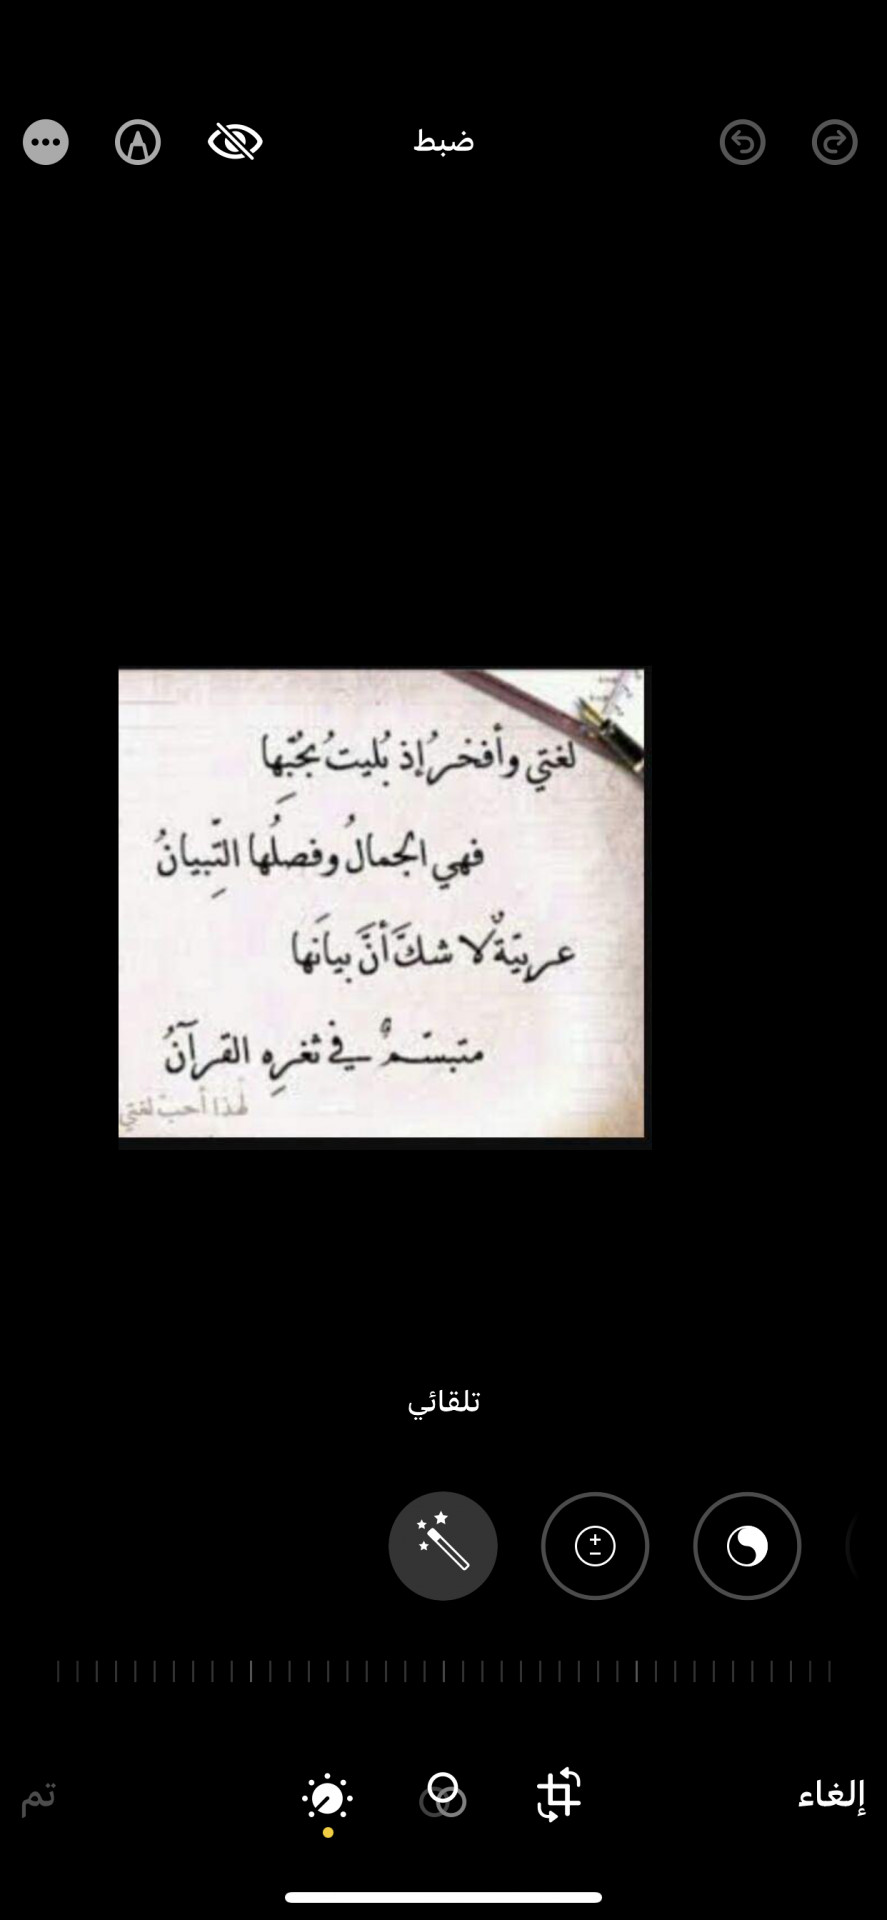 ضبط
لغتي وأفخرُ إذ بُليتُ بحُبِّها
فهي الجمالُ وفصلُها التِّبيانُ
عربيّةٌ لا شكَّ أنَّ بيانَها
متبسّمٌ في ثغرِهِ القرآنُ
لهذا أحبّ لغتي
تلقائي
إلغاء
تم